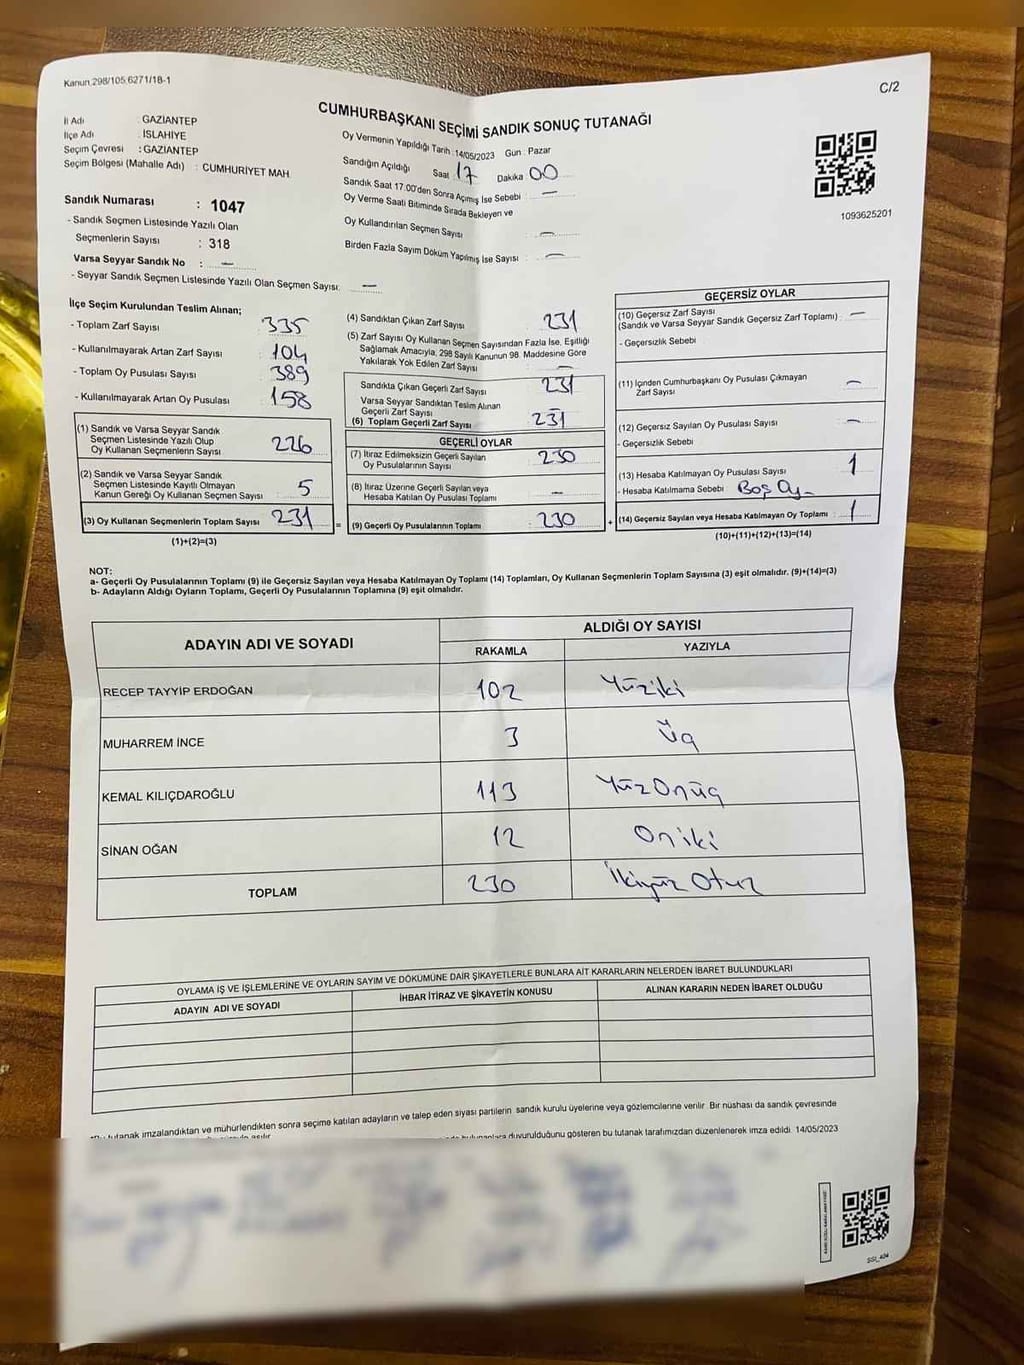 Kanun 298/105,6271/18-1
C/2
CUMHURBAŞKANI SEÇİMİ SANDIK SONUÇ TUTANAĞI
İl Adı : GAZİANTEP
İlçe Adı : İSLAHİYE
Seçim Çevresi : GAZİANTEP
Seçim Bölgesi (Mahalle Adı) : CUMHURİYET MAH.
Oy Vermenin Yapıldığı Tarih : 14/05/2023 Gün : Pazar
Sandığın Açıldığı Saat : 17 Dakika 00
Sandık Saat 17.00'den Sonra Açımış İse Sebebi : —
Oy Verme Saati Bitiminde Sırada Bekleyen ve
Oy Kullandırılan Seçmen Sayısı : —
Birden Fazla Sayım Döküm Yapılmış İse Sayısı : —
1093625201
Sandık Numarası : 1047
- Sandık Seçmen Listesinde Yazılı Olan
Seçmenlerin Sayısı : 318
Varsa Seyyar Sandık No : —
- Seyyar Sandık Seçmen Listesinde Yazılı Olan Seçmen Sayısı: —
İlçe Seçim Kurulundan Teslim Alınan;
- Toplam Zarf Sayısı : 335
- Kullanılmayarak Artan Zarf Sayısı : 104
- Toplam Oy Pusulası Sayısı : 389
- Kullanılmayarak Artan Oy Pusulası : 158
(1) Sandık ve Varsa Seyyar Sandık
Seçmen Listesinde Yazılı Olup
Oy Kullanan Seçmenlerin Sayısı : 226
(2) Sandık ve Varsa Seyyar Sandık
Seçmen Listesinde Kayıtlı Olmayan
Kanun Gereği Oy Kullanan Seçmen Sayısı : 5
(3) Oy Kullanan Seçmenlerin Toplam Sayısı : 231
(1)+(2)=(3)
(4) Sandıktan Çıkan Zarf Sayısı : 231
(5) Zarf Sayısı Oy Kullanan Seçmen Sayısından Fazla İse, Eşitliği
Sağlamak Amacıyla, 298 Sayılı Kanunun 98. Maddesine Göre
Yakılarak Yok Edilen Zarf Sayısı : —
Sandıkta Çıkan Geçerli Zarf Sayısı : 231
Varsa Seyyar Sandıktan Teslim Alınan
Geçerli Zarf Sayısı : —
(6) Toplam Geçerli Zarf Sayısı : 231
GEÇERLİ OYLAR
(7) İtiraz Edilmeksizin Geçerli Sayılan
Oy Pusulalarının Sayısı : 230
(8) İtiraz Üzerine Geçerli Sayılan veya
Hesaba Katılan Oy Pusulası Toplamı : —
= (9) Geçerli Oy Pusulalarının Toplamı : 230 +
GEÇERSİZ OYLAR
(10) Geçersiz Zarf Sayısı
(Sandık ve Varsa Seyyar Sandık Geçersiz Zarf Toplamı) : —
- Geçersizlik Sebebi
(11) İçinden Cumhurbaşkanı Oy Pusulası Çıkmayan
Zarf Sayısı : —
(12) Geçersiz Sayılan Oy Pusulası Sayısı : —
- Geçersizlik Sebebi
(13) Hesaba Katılmayan Oy Pusulası Sayısı : 1
- Hesaba Katılmama Sebebi : Boş Oy
(14) Geçersiz Sayılan veya Hesaba Katılmayan Oy Toplamı : 1
(10)+(11)+(12)+(13)=(14)
NOT:
a- Geçerli Oy Pusulalarının Toplamı (9) ile Geçersiz Sayılan veya Hesaba Katılmayan Oy Toplamı (14) Toplamları, Oy Kullanan Seçmenlerin Toplam Sayısına (3) eşit olmalıdır. (9)+(14)=(3)
b- Adayların Aldığı Oyların Toplamı, Geçerli Oy Pusulalarının Toplamına (9) eşit olmalıdır.
ADAYIN ADI VE SOYADI
ALDIĞI OY SAYISI
RAKAMLA YAZIYLA
RECEP TAYYİP ERDOĞAN 102 Yüziki
MUHARREM İNCE 3 Üç
KEMAL KILIÇDAROĞLU 113 YüzOnüç
SİNAN OĞAN 12 Oniki
TOPLAM 230 İkiyüz Otuz
OYLAMA İŞ VE İŞLEMLERİNE VE OYLARIN SAYIM VE DÖKÜMÜNE DAİR ŞİKAYETLERLE BUNLARA AİT KARARLARIN NELERDEN İBARET BULUNDUKLARI
ADAYIN ADI VE SOYADI İHBAR İTİRAZ VE ŞİKAYETİN KONUSU ALINAN KARARIN NEDEN İBARET OLDUĞU
tutanak imzalandıktan ve mühürlendikten sonra seçime katılan adayların ve talep eden siyasi partilerin sandık kurulu üyelerine veya gözlemcilerine verilir. Bir nüshası da sandık çevresinde
duyurulduğunu gösteren bu tutanak tarafımızdan düzenlenerek imza edildi. 14/05/2023